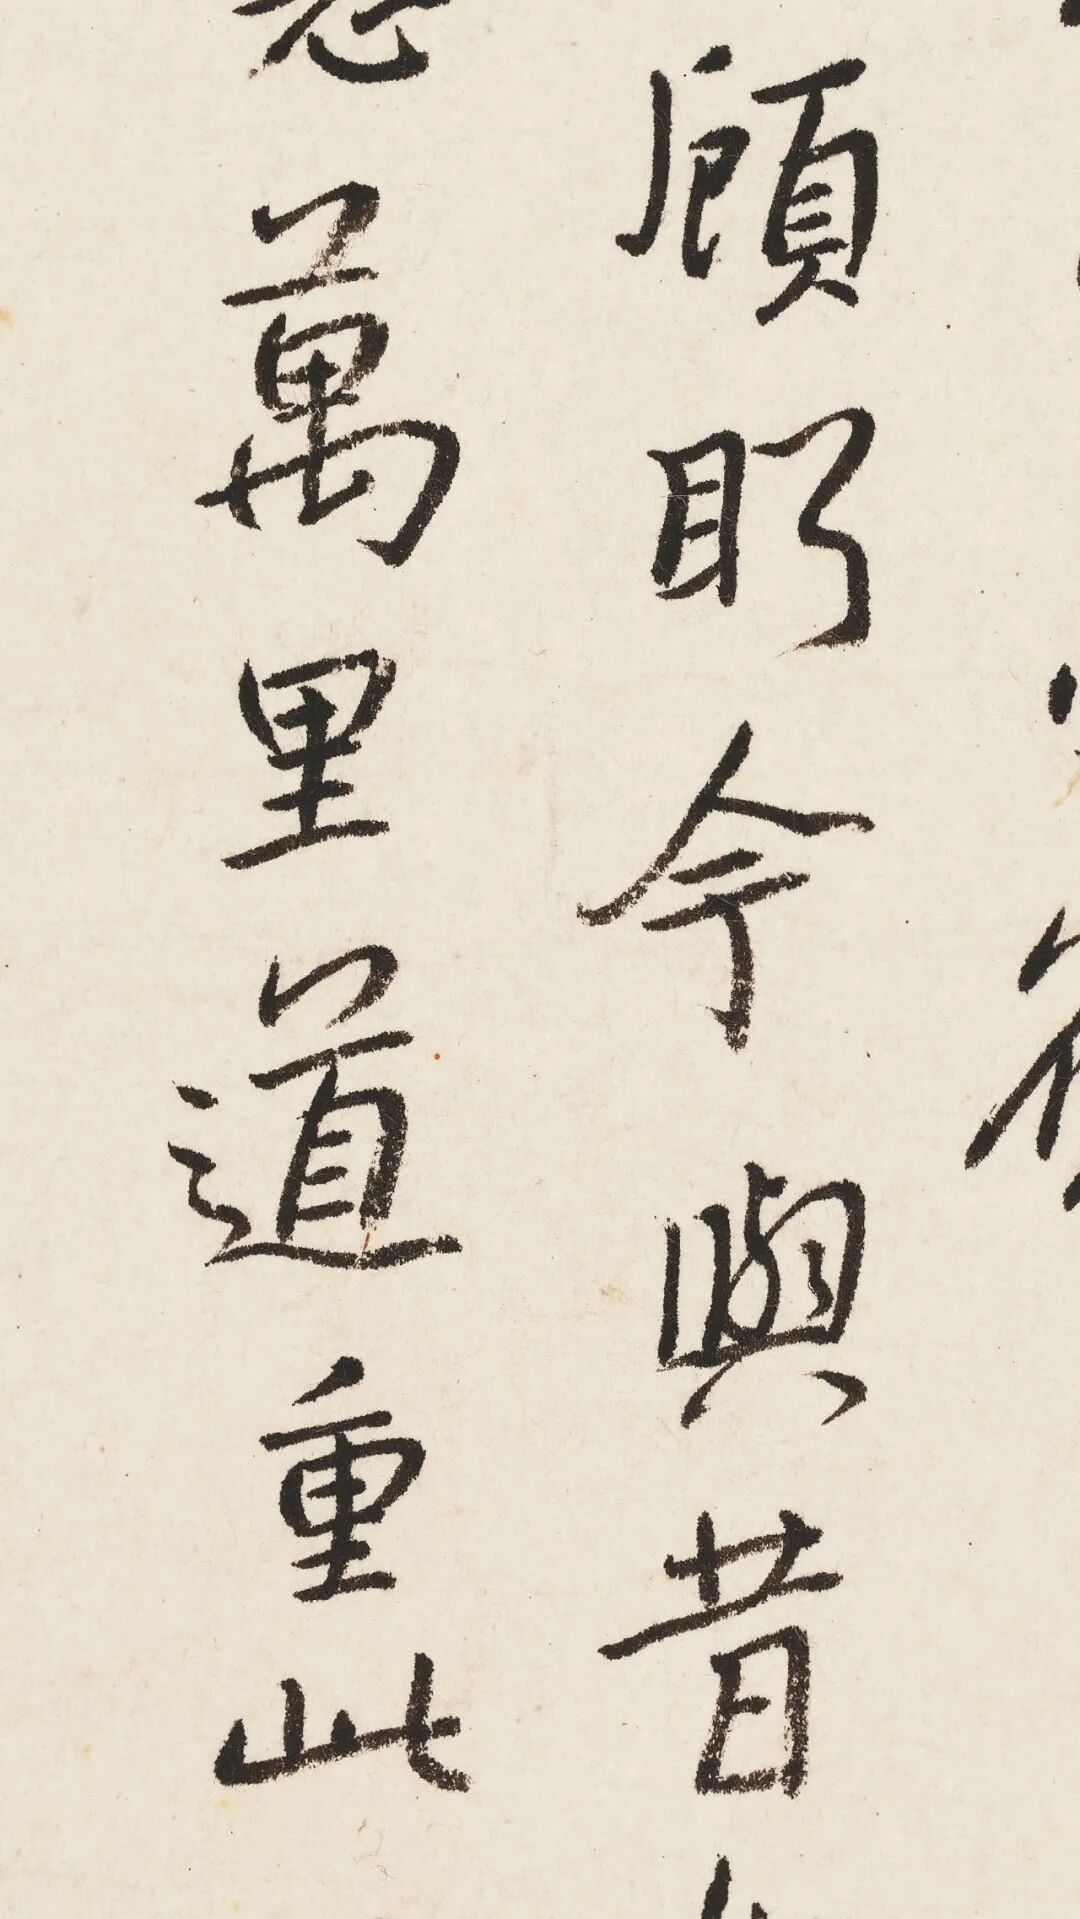 顧眄今與昔
萬里道重此